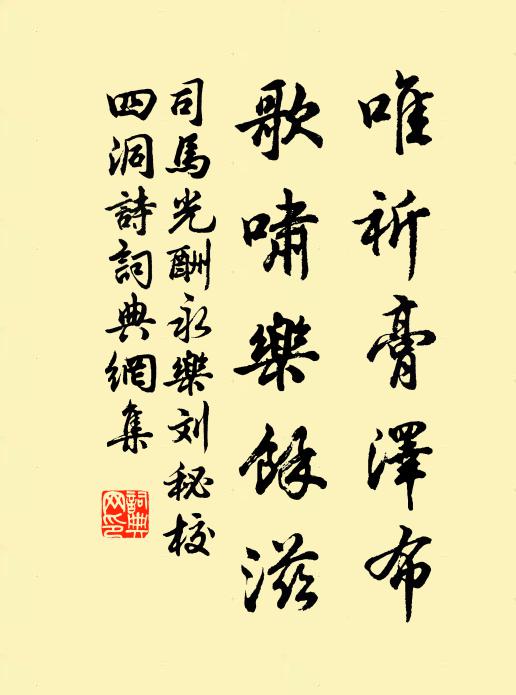 唯祈膏澤布
歌嘯樂餘滋
司馬光酬永樂刘秘校
四洞詩詞典網集
詞典
网印